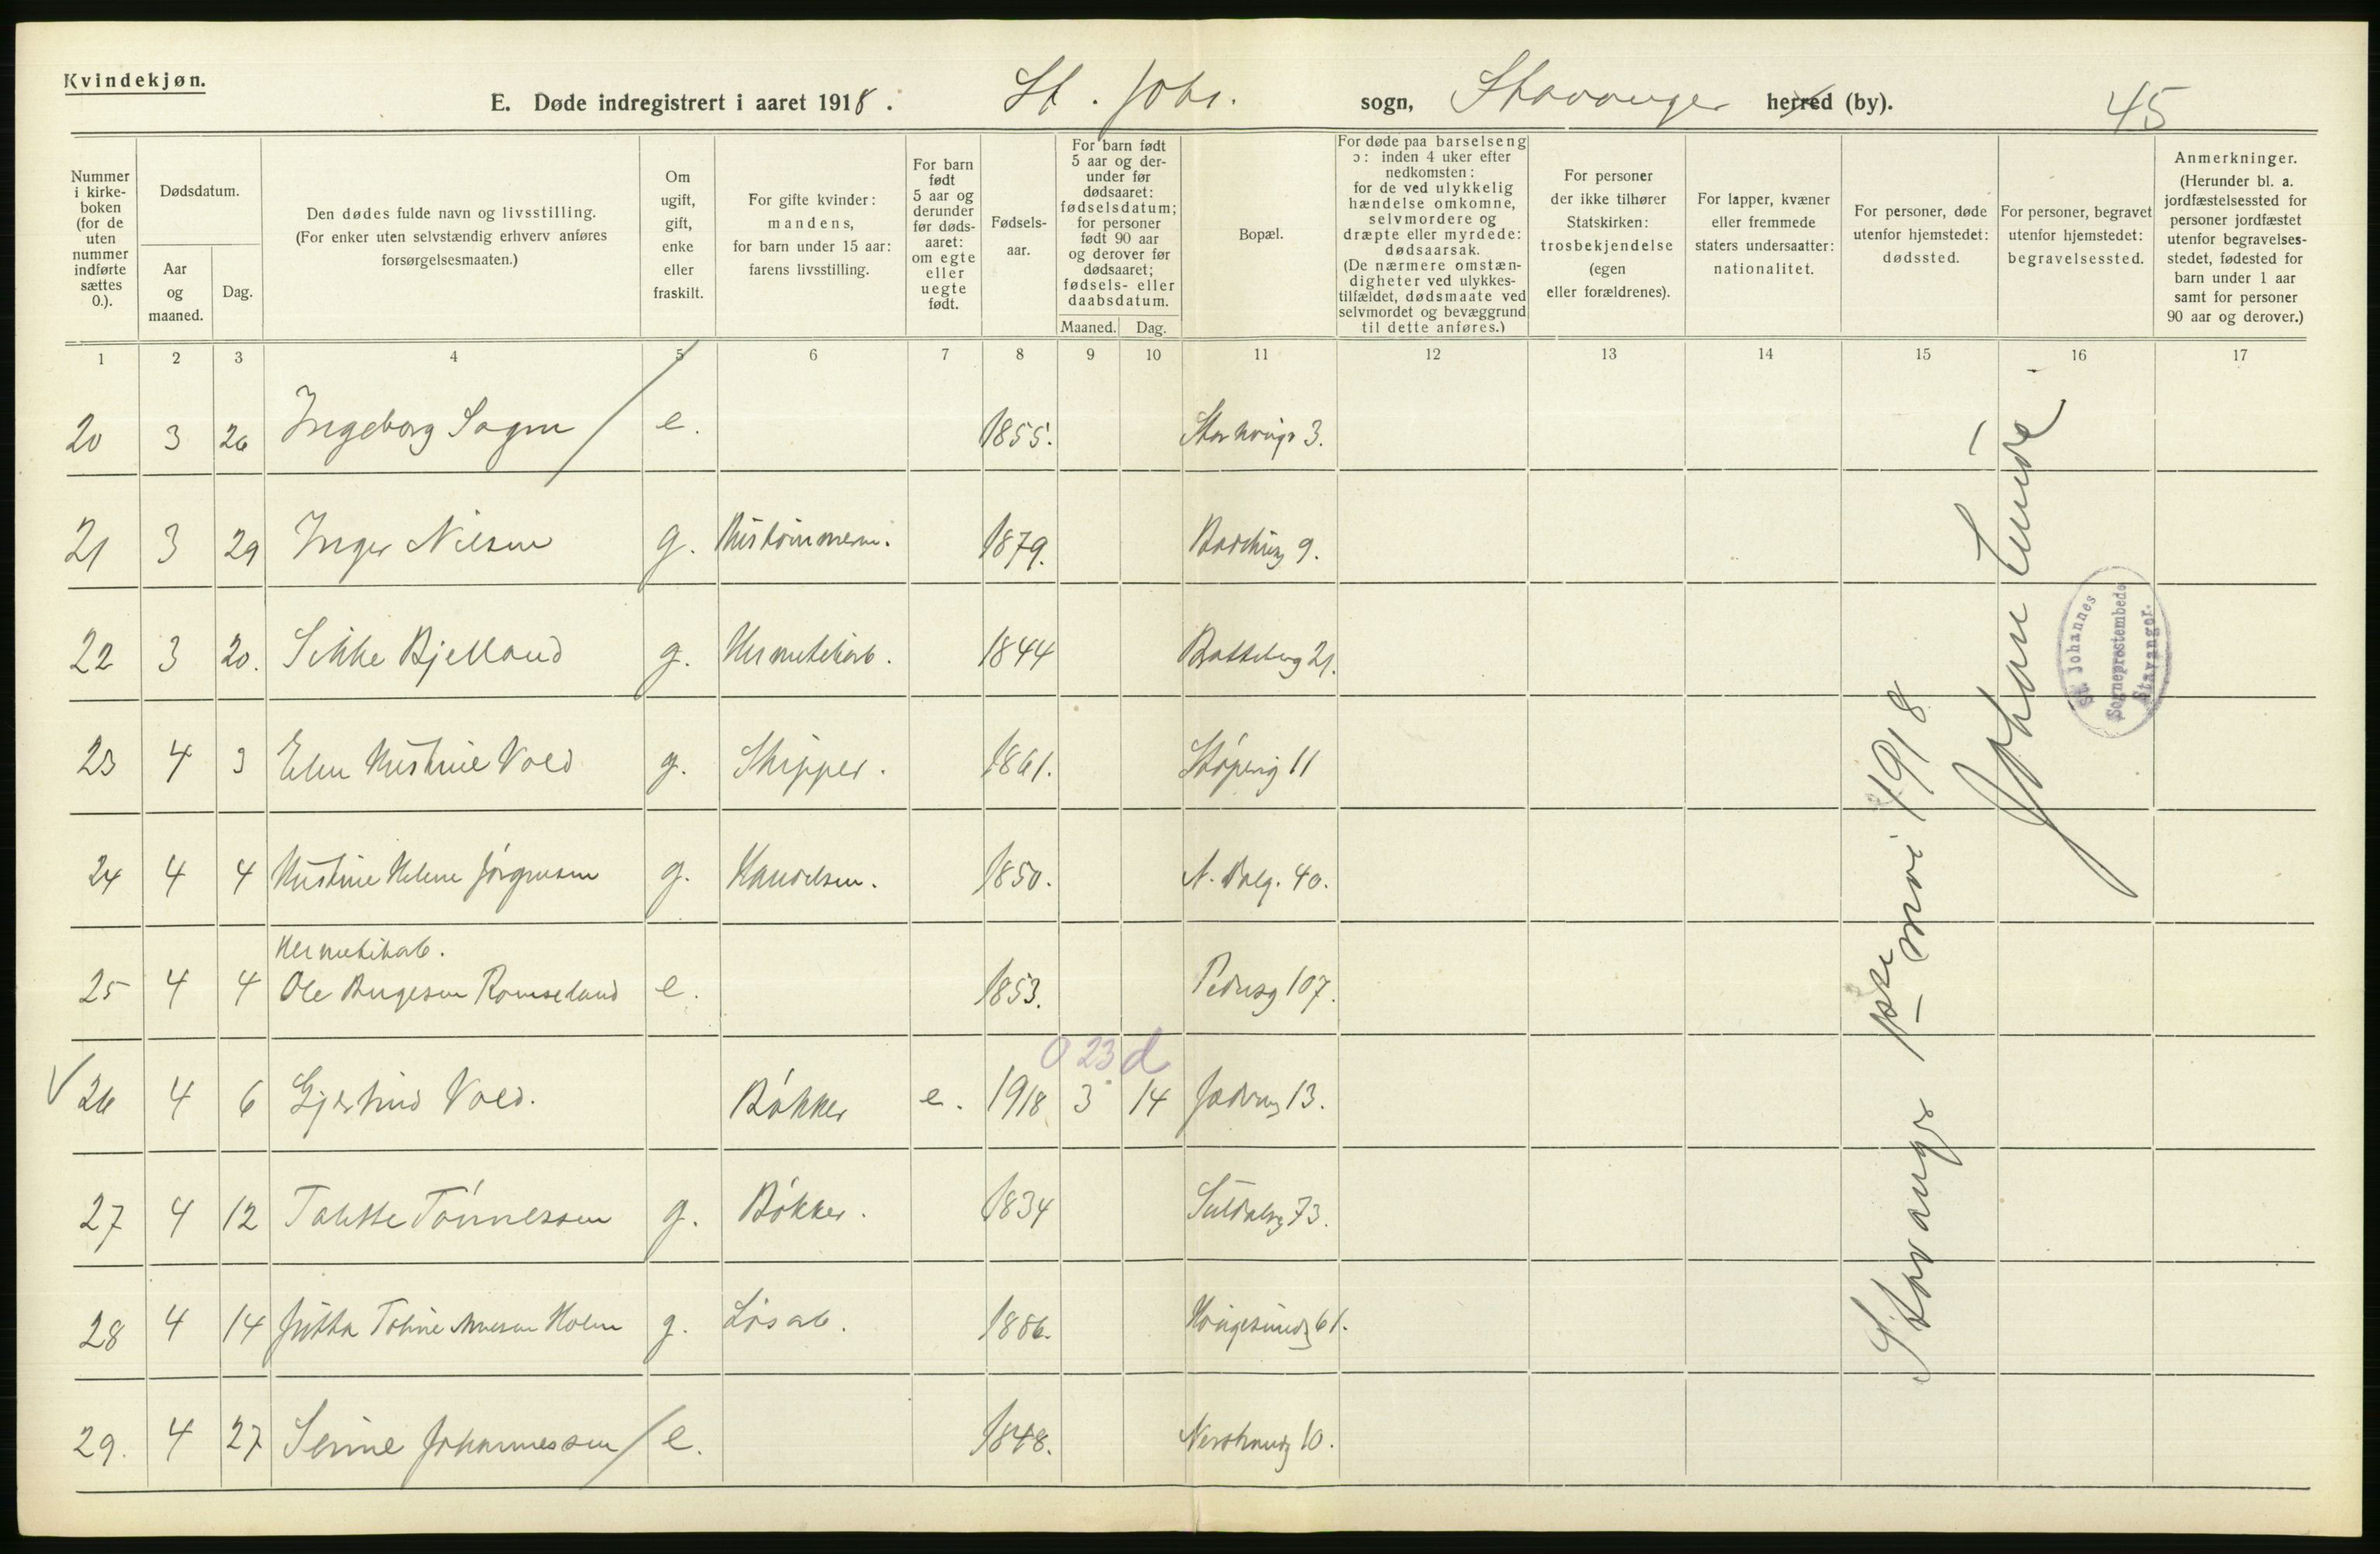 Kvindekjøn.
E. Døde indregistrert i aaret 1918. St. Johs. sogn, Stavanger herred (by). 45
Nummer i kirkeboken (for de uten nummer indførte sættes 0.).
Dødsdatum.
Aar og maaned.
Dag.
Den dødes fulde navn og livsstilling. (For enker uten selvstændig erhverv anføres forsørgelsesmaaten.)
Om ugift, gift, enke eller fraskilt.
For gifte kvinder: mandens, for barn under 15 aar: farens livsstilling.
For barn født 5 aar og derunder før dødsaaret: om egte eller uegte født.
Fødselsaar.
For barn født 5 aar og derunder før dødsaaret: fødselsdatum; for personer født 90 aar og derover før dødsaaret; fødsels- eller daabsdatum.
Maaned. Dag.
Bopæl.
For døde paa barselseng ɔ: inden 4 uker efter nedkomsten: for de ved ulykkelig hændelse omkomne, selvmordere og dræpte eller myrdede: dødsaarsak. (De nærmere omstændigheter ved ulykkestilfældet, dødsmaate ved selvmordet og bevæggrund til dette anføres.)
For personer der ikke tilhører Statskirken: trosbekjendelse (egen eller forældrenes).
For lapper, kvæner eller fremmede staters undersaatter: nationalitet.
For personer, døde utenfor hjemstedet: dødssted.
For personer, begravet utenfor hjemstedet: begravelsessted.
Anmerkninger. (Herunder bl. a. jordfæstelsessted for personer jordfæstet utenfor begravelsesstedet, fødested for barn under 1 aar samt for personer 90 aar og derover.)
1 2 3 4 5 6 7 8 9 10 11 12 13 14 15 16 17
20 3 26 Ingeborg Sagen e. 1855. Storhaugv 3.
21 3 29 Inger Nilsen g. 1879. 9.
22 3 20. Sikke Bjelland g. Hermetikarb. 1844 21.
23 4 3 Elen Kristine Vold g. Skipper. 1861. Støperig 11
24 4 4 Kristine Helene Jørgensen g. Handelsm. 1850. N. Dalg. 40.
Hermetikarb.
25 4 4 Ole Bergesen Ramseland e. 1853. Pedersg 107.
0 23 d
26 4 6 Gjertrud Vold. Bøkker e. 1918 3 14 13.
27 4 12 Tønnessen g. Bøkker. 1834 Suldalsg 73.
28 4 14 Jutta Holm g. Løsarb. 1886. Haugesundg 61.
29. 4 27 Serine Johannessen e. 1848. Nerstrandg 10.
Stavanger 1ste mai 1918
Johan Lunde.
St. Johannes
Sogneprestembede
Stavanger.